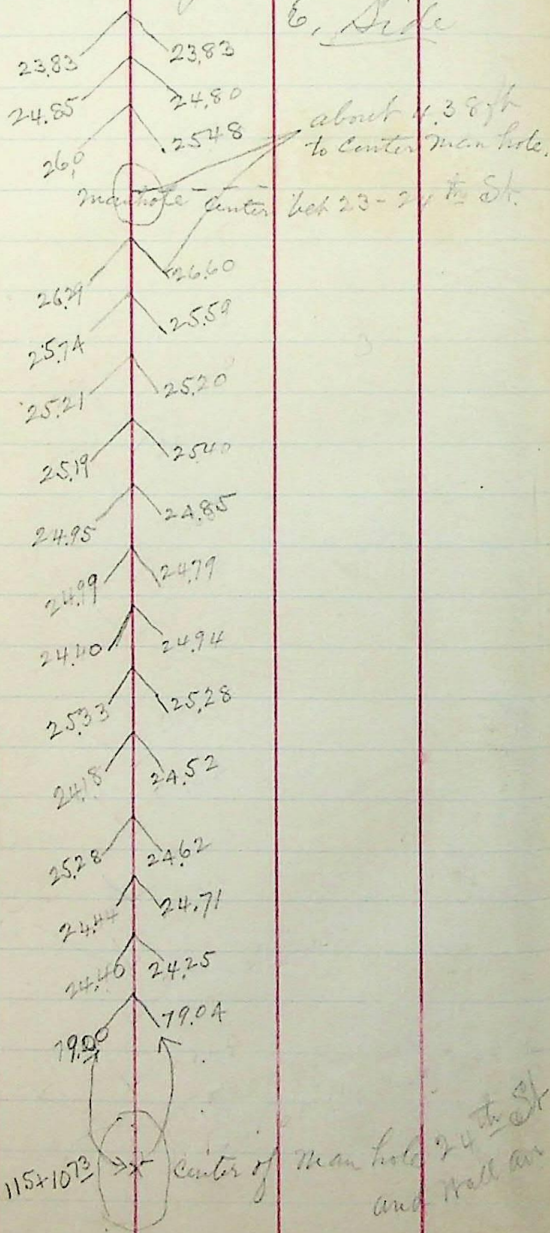 E. Side
23.83 23.83
24.85 24.80
26.0 25.48
about 4.38 ft
to Center Man hole.
Manhole Center bet 23 - 24th St.
26.29 26.60
25.74 25.59
25.21 25.20
25.19 25.40
24.95 24.85
24.99 24.79
24.40 24.94
25.33 25.28
24.18 24.52
25.28 24.62
24.44 24.71
24.40 24.25
79.00 79.04
115+107.3 Center of Man hole 24th St
and Wall av